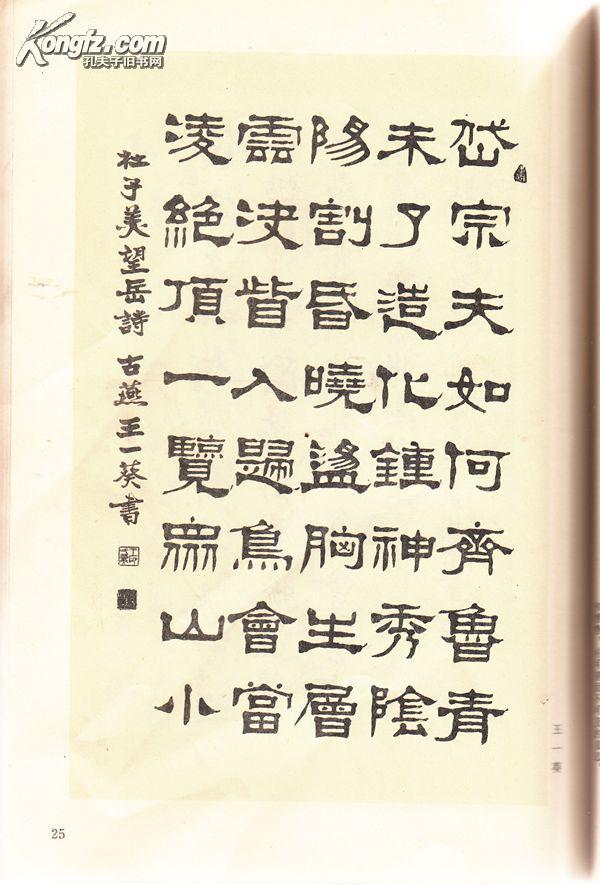 岱宗夫如何齊魯青
未了造化鍾神秀陰
陽割昏曉盪胸生層
雲決眥入歸鳥會當
凌絕頂一覽眾山小
杜子美望岳詩 古燕王一葵書
王一葵
25
Kongfz.com
孔夫子旧书网